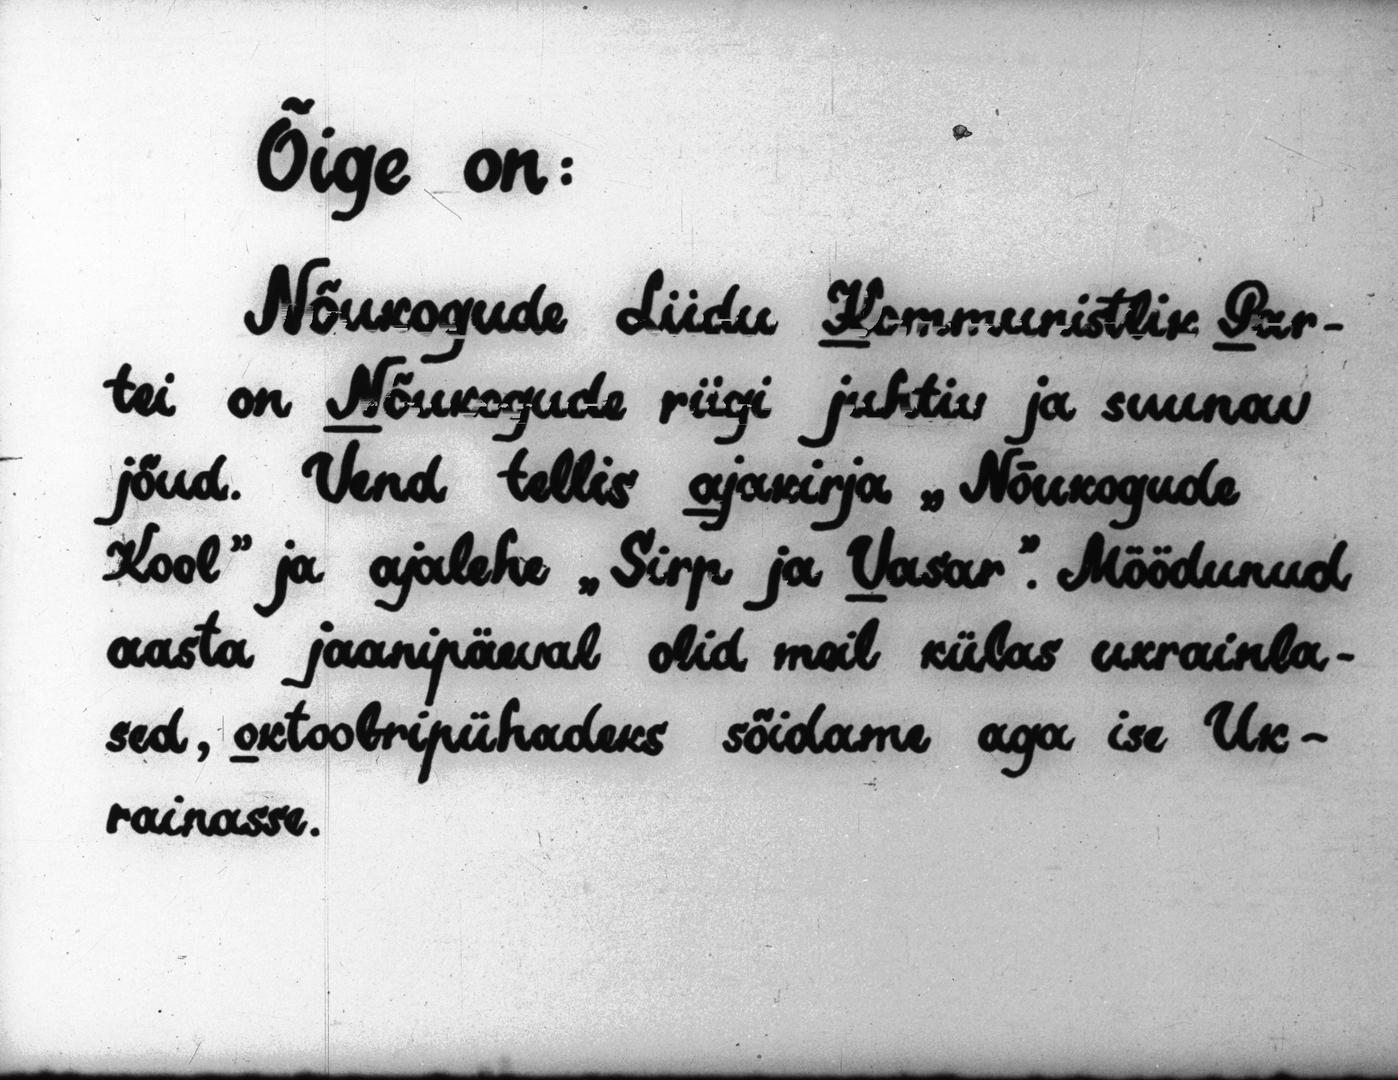 Õige on:
Nõukogude Liidu Kommunistlik Par-
tei on Nõukogude riigi juhtiv ja suunav
jõud. Vend tellis ajakirja „Nõukogude
Kool” ja ajalehe „Sirp ja Vasar”. Möödunud
aasta jaanipäeval olid meil külas ukrainla-
sed, oktoobripühadeks sõidame aga ise Uk-
rainasse.